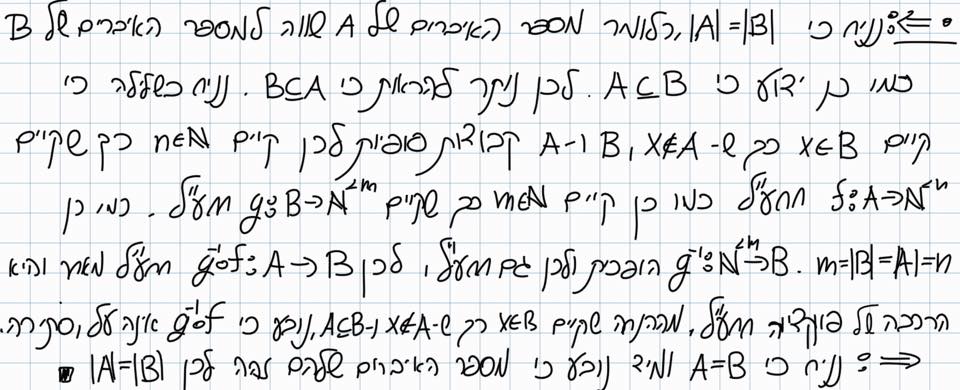 • ⇐: נניח כי |A|=|B|, כלומר מספר האיברים של A שווה למספר האיברים של B
כמו כן ידוע כי A⊆B. לכן נותר להראות כי B⊆A. נניח בשלילה כי
קיים x∈B כך ש- x∉A, B ו-A קבוצות סופיות לכן קיים n∈ℕ כך שקיים
f:A→ℕ^{<n} חח"ע ועל כמו כן קיים m∈ℕ כך שקיים g:B→ℕ^{<m} חח"ע ועל. כמו כן
m=|B|=|A|=n. g⁻¹:ℕ^{<m}→B הופכית ולכן גם חח"ע ועל, לכן g⁻¹∘f:A→B חח"ע ועל מאחר והיא
הרכבה של פונקציה חח"ע ועל, מההנחה שקיים x∈B כך ש-x∉A ו-A⊆B, נובע כי g⁻¹∘f אינה על, סתירה.
⇒: נניח כי A=B ומיד נובע כי מספר האיברים שלהם זהה לכן |A|=|B| ■